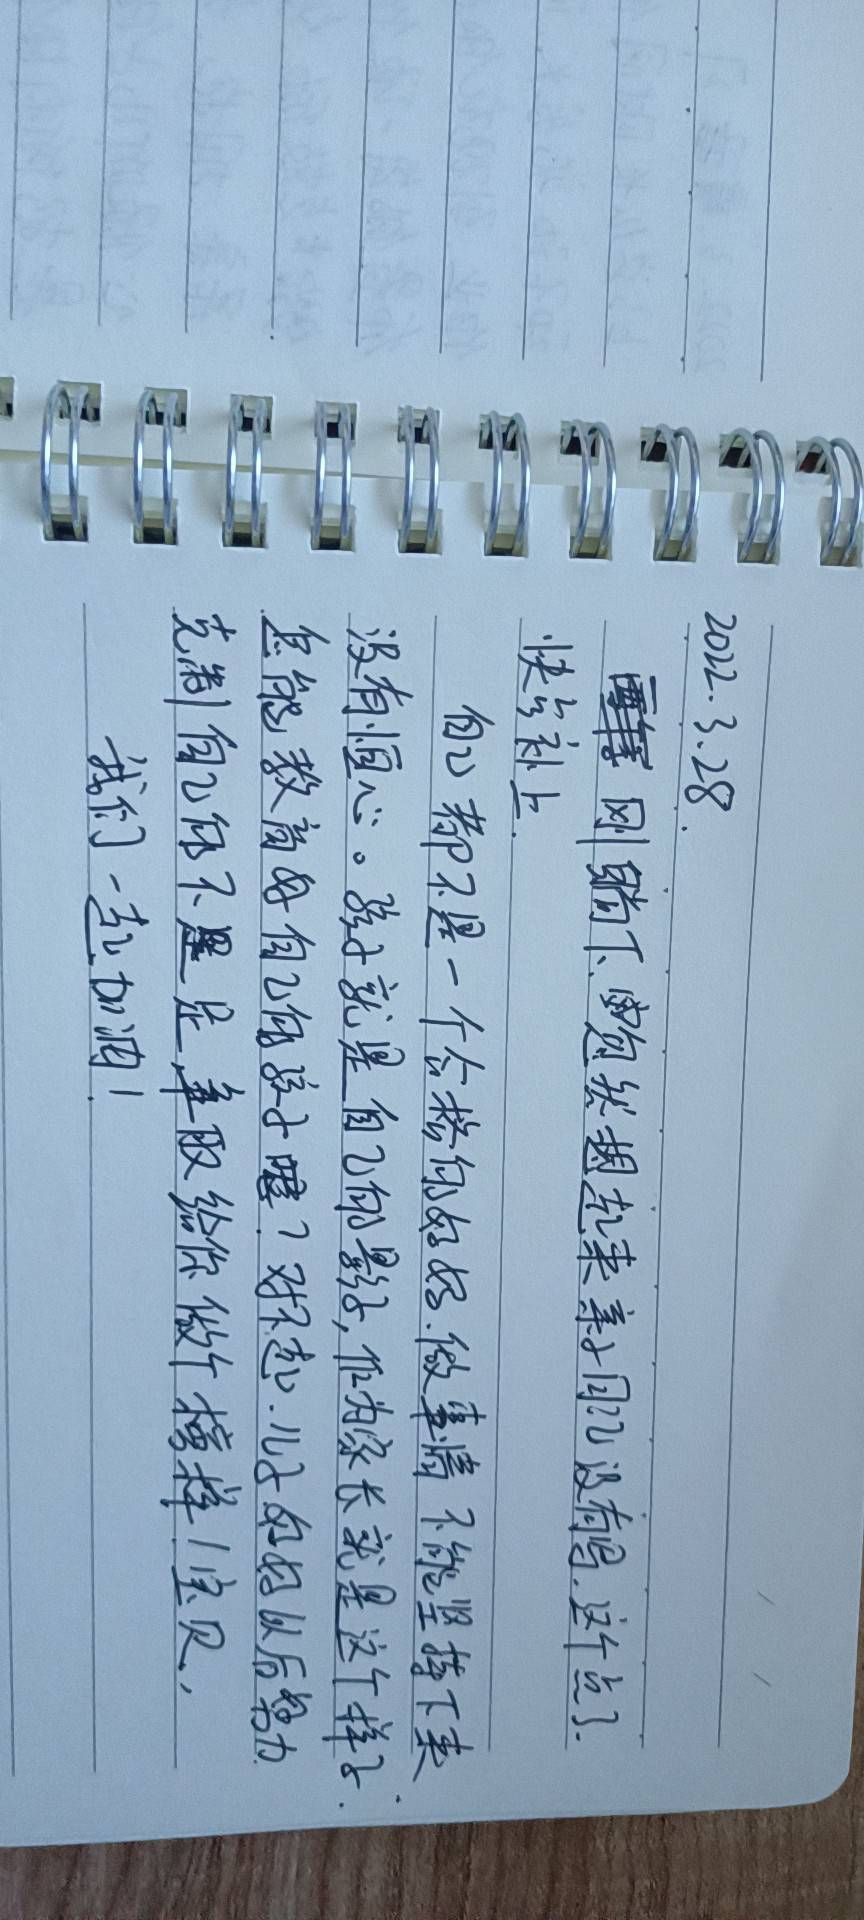 2022.3.28.
刚躺下、突然想起来亲子日记没有写.这个点了.
快点补上.
自己都不是一个合格的妈妈.做事情不能坚持下来
没有恒心。孩子就是自己的影子,作为家长就是这个样子.
怎能教育好自己的孩子呢?对不起.儿子妈妈以后努力
克制自己的不足 争取给你做个榜样!宝贝,
我们一起加油!